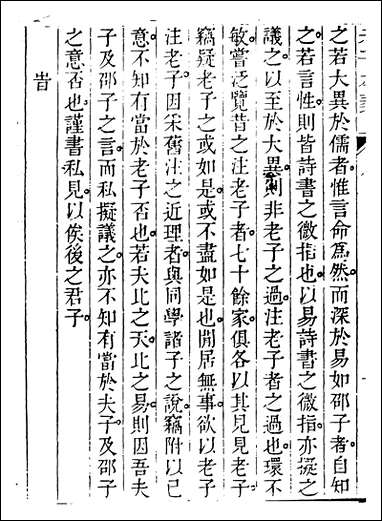 之若大異於儒者惟言命為然而深於易如邵子者自知
之若言性則皆詩書之微指也以易詩書之微指亦擬之
議之以至於大異則非老子之過注老子者之過也環不
敏嘗泛覽昔之注老子者七十餘家俱各以其見見老子
竊疑老子之或如是或不盡如是也閒居無事欲以老子
注老子因采舊注之近理者與同學諸子之說竊附以己
意不知有當於老子否也若夫比之天比之易則因吾夫
子及邵子之言而私擬議之亦不知有當於夫子及邵子
之意否也謹書私見以俟後之君子
昔